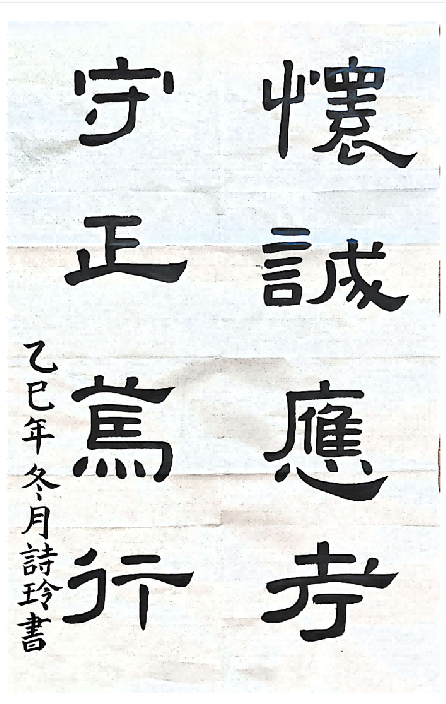 懷誠應考
守正篤行
乙巳年冬月詩玲書